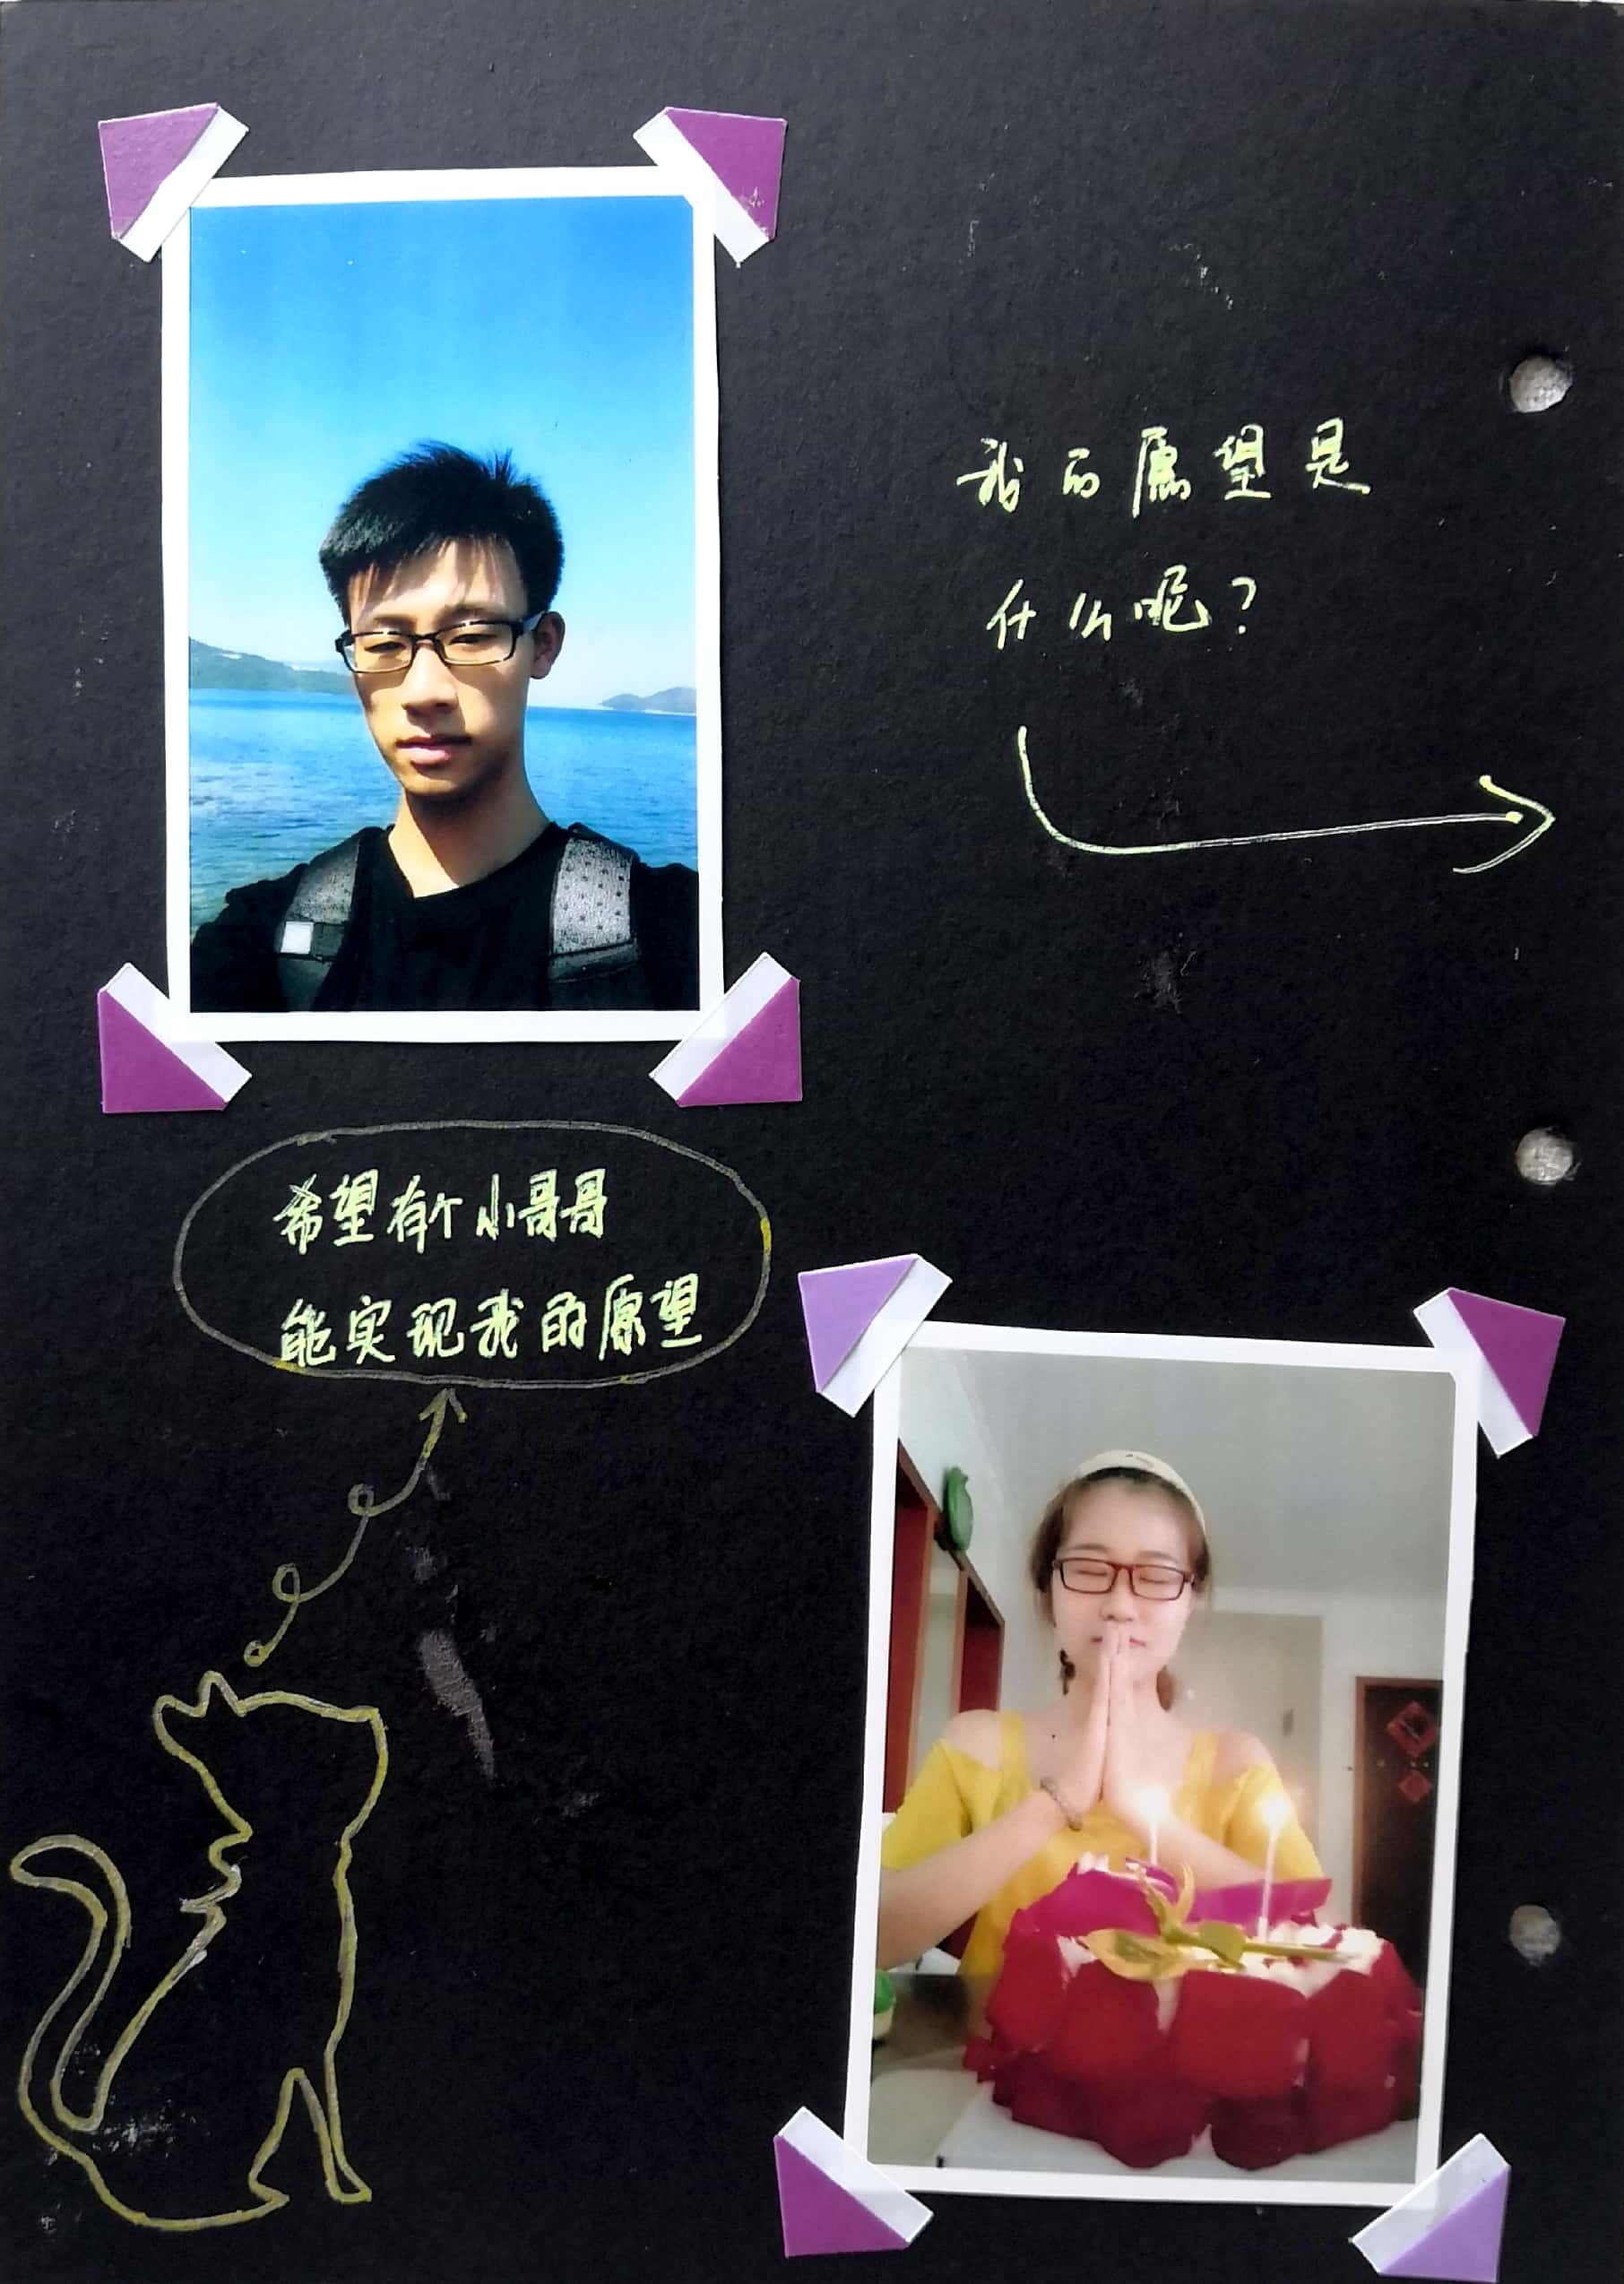 我的愿望是
什么呢？
希望有个小哥哥
能实现我的愿望